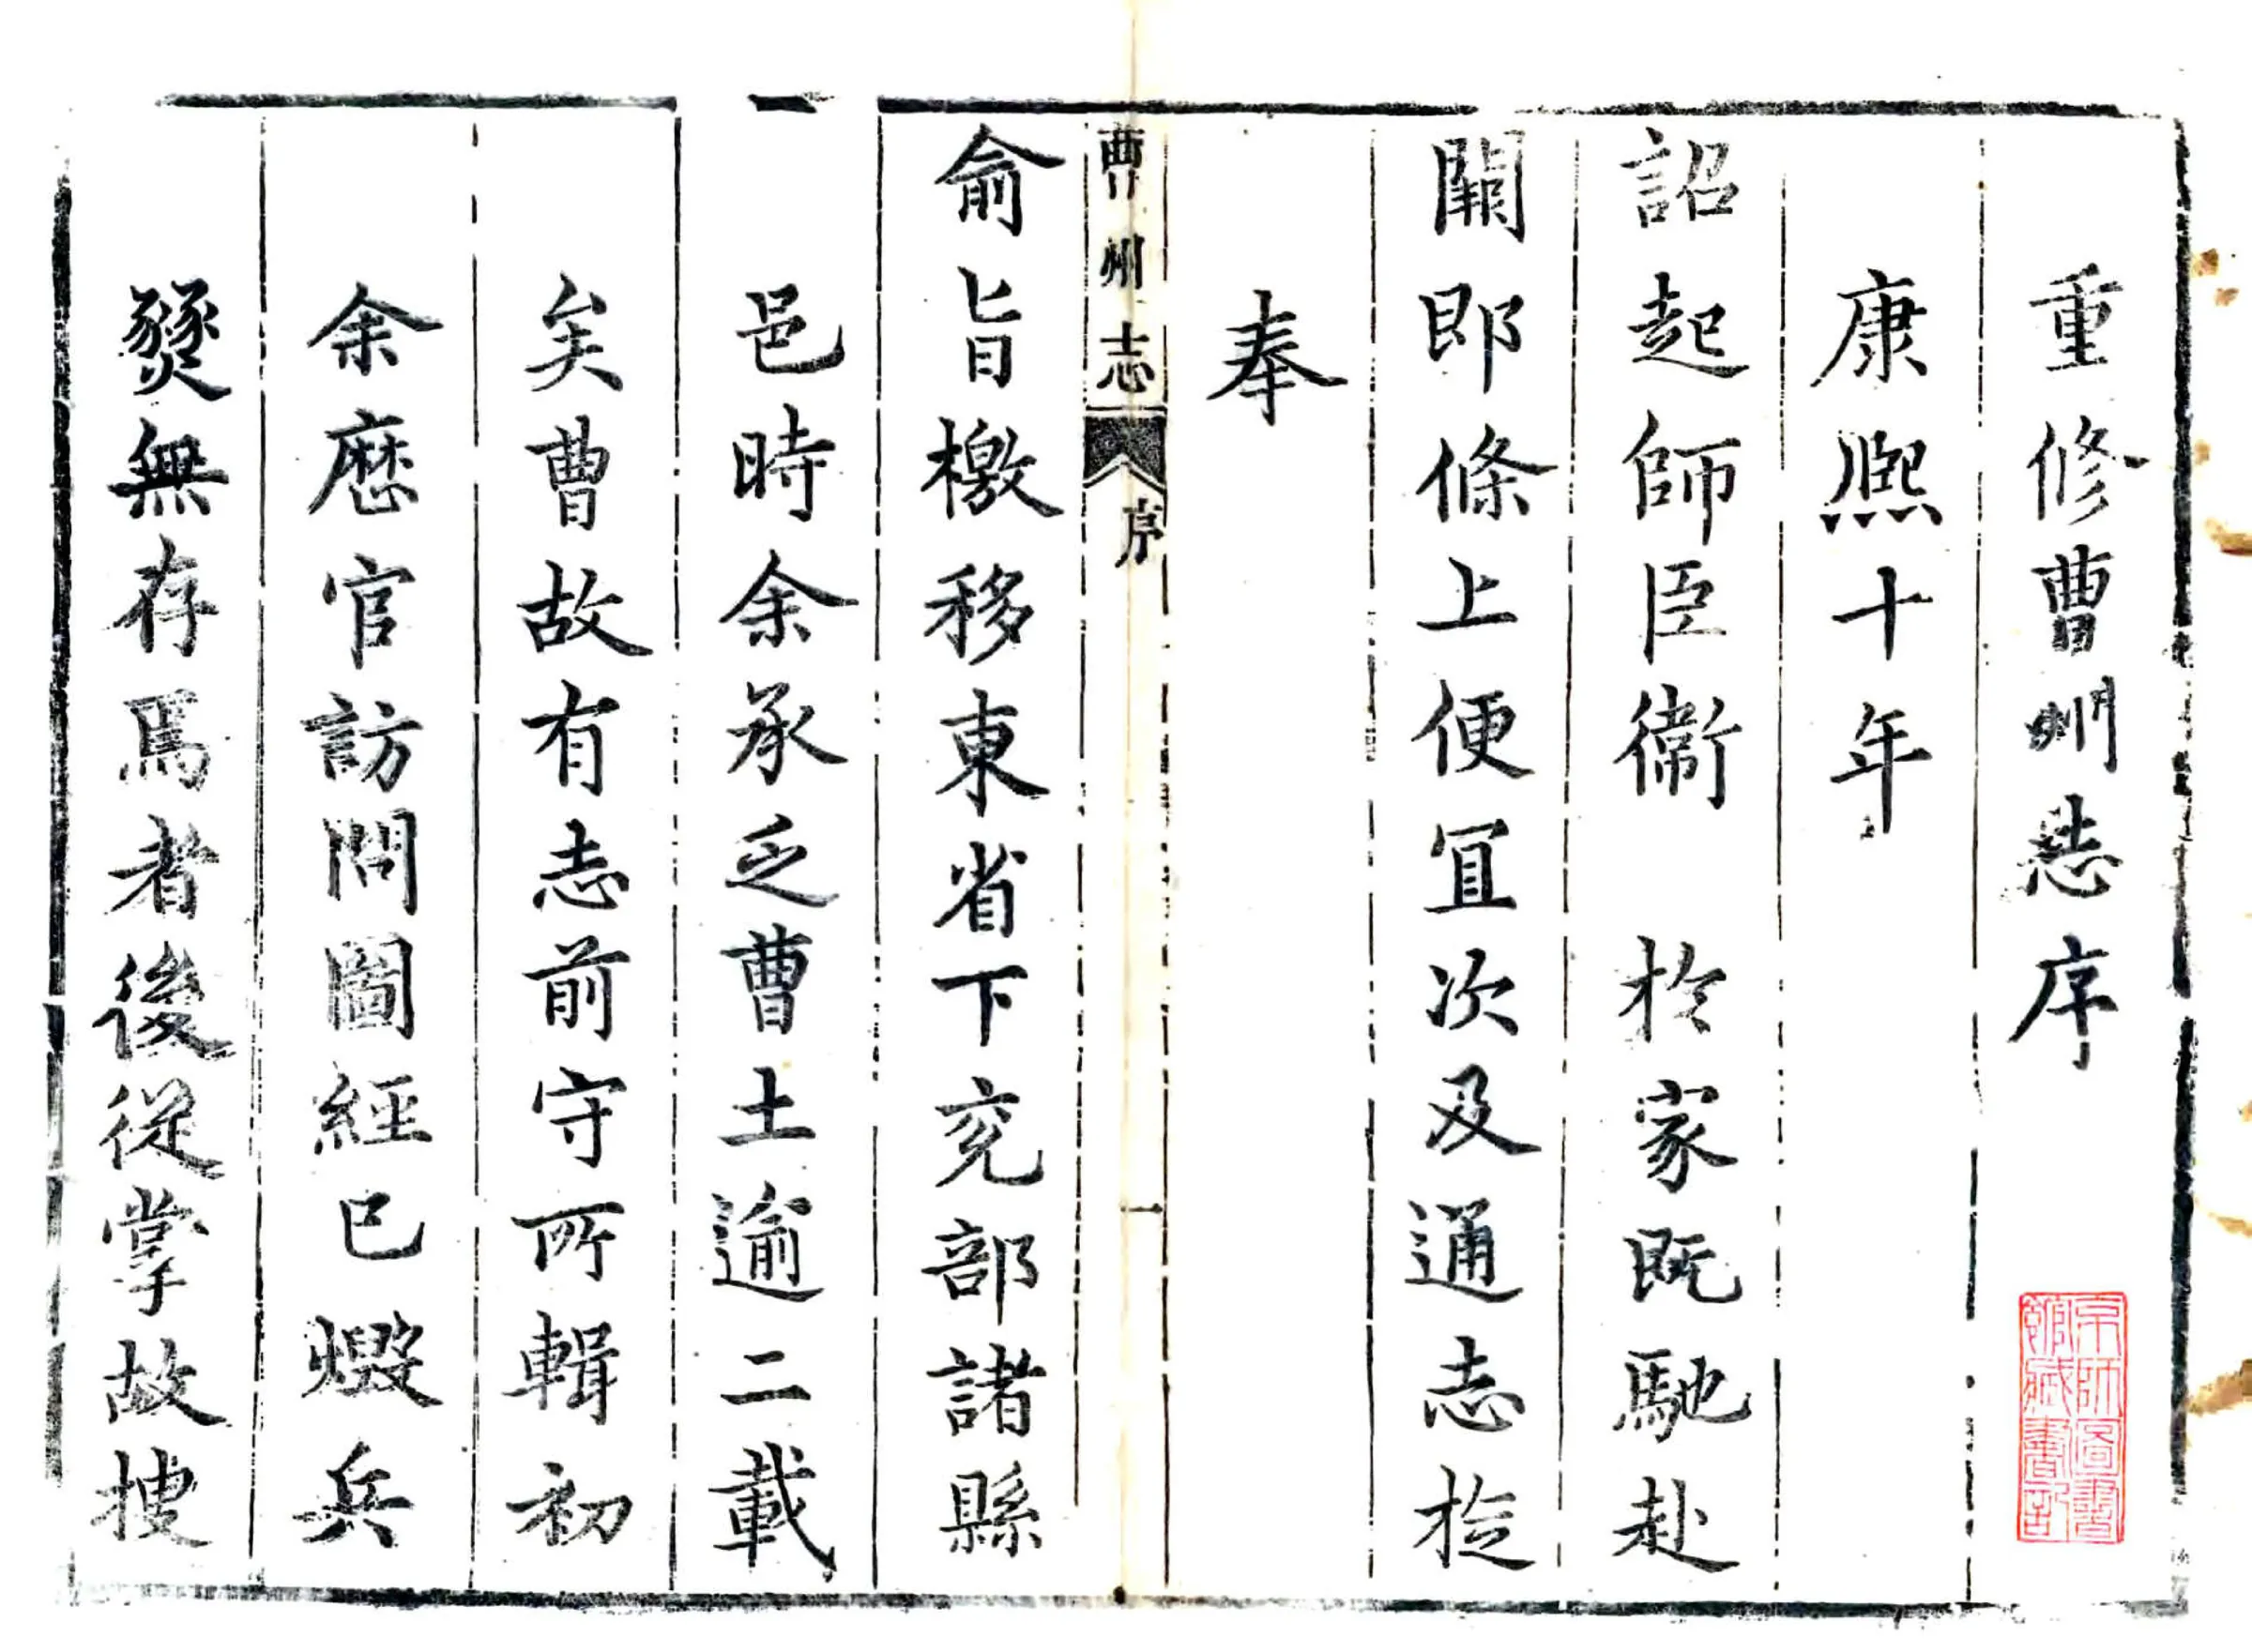 重修曹州志序
康熙十年
詔起師臣衞 於家既馳赴
闕即條上便宜次及通志旋
奉
曹州志 序 一
俞旨檄移東省下兖部諸縣
邑時余承乏曹土逾二載
矣曹故有志前守所輯初
余歴官訪問圖經已燬兵
燹無存焉者後從掌故搜
京師圖書館藏書記